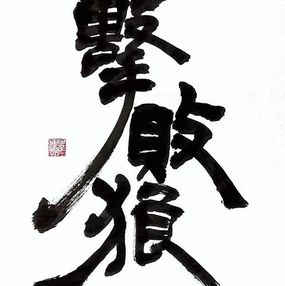 擊敗狼